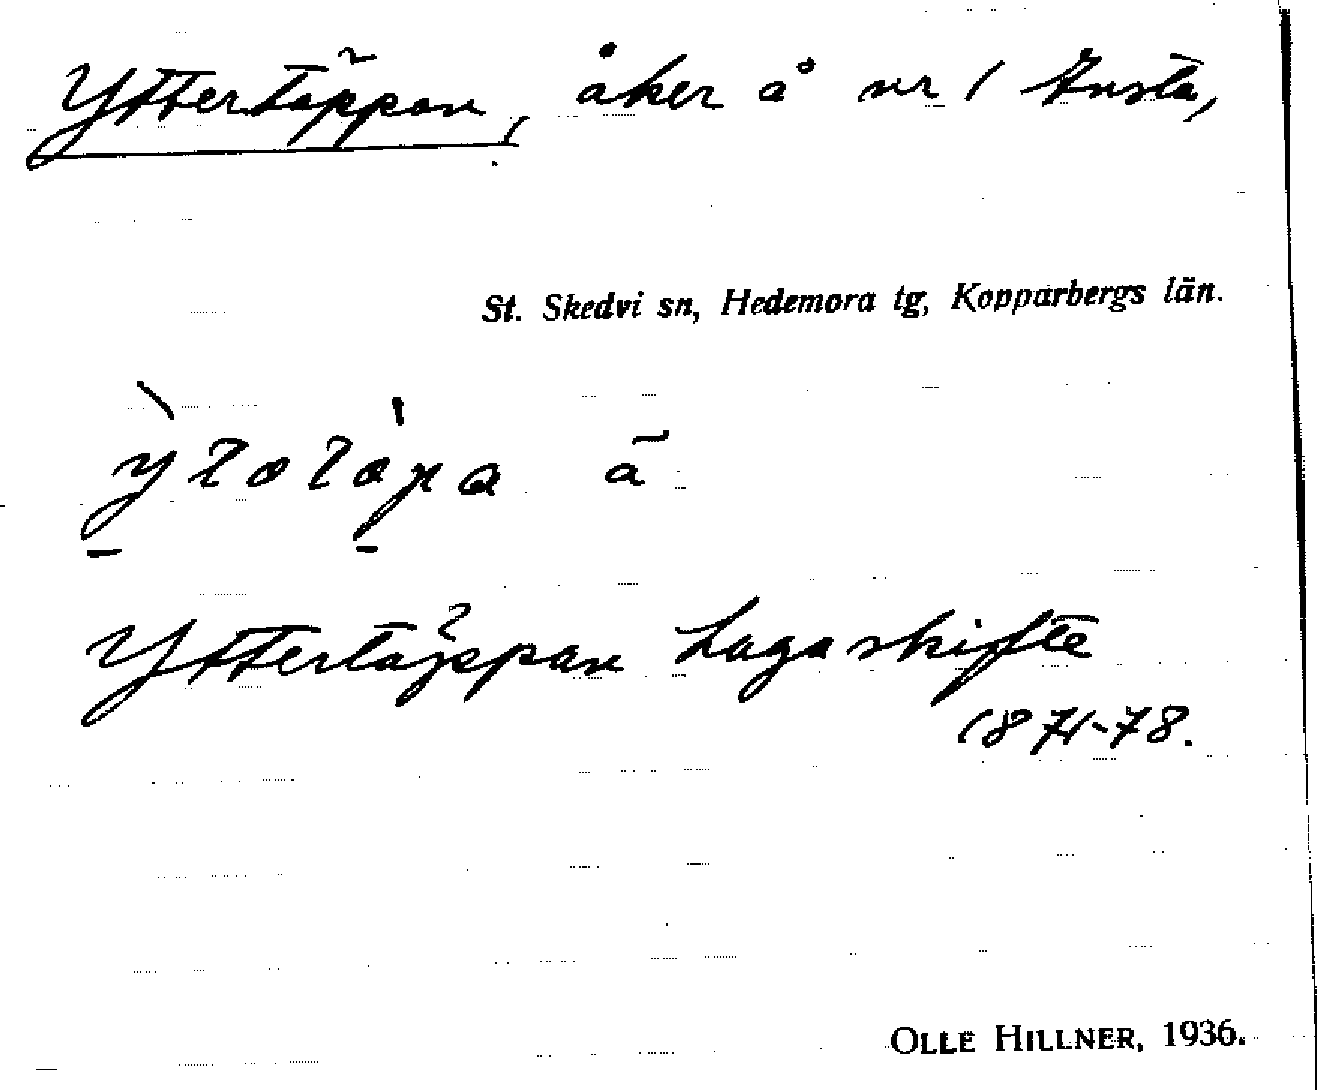 Yttertäppan, åker å nr 1 Knusta,
St. Skedvi sn, Hedemora tg, Kopparbergs län.
Yttertäppan Laga skifte
1871-78.
OLLE HILLNER, 1936.